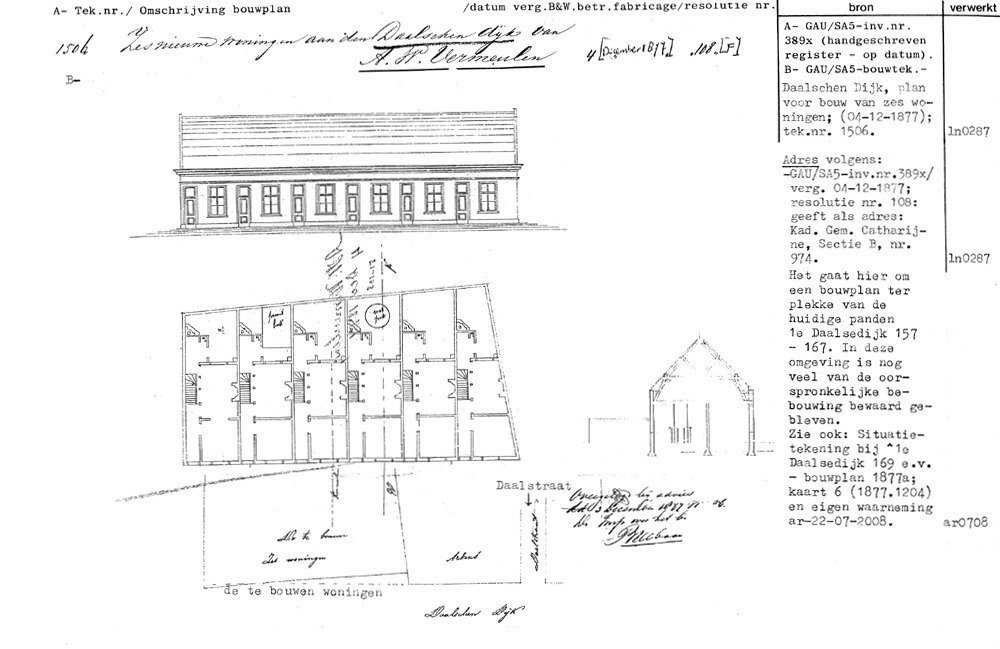 A- Tek.nr./ Omschrijving bouwplan
/datum verg.B&W.betr.fabricage/resolutie nr.
bron
verwerkt
1506
Zes nieuwe woningen aan den Daalschen dijk van
A. W. Vermeulen
4 [December 1877]
108. [F]
B-
A- GAU/SA5-inv.nr.
389x (handgeschreven
register - op datum).
B- GAU/SA5-bouwtek.-
Daalschen Dijk, plan
voor bouw van zes wo-
ningen; (04-12-1877);
tek.nr. 1506.
ln0287
Adres volgens:
-GAU/SA5-inv.nr.389x/
verg. 04-12-1877;
resolutie nr. 108:
geeft als adres:
Kad. Gem. Catharij-
ne, Sectie B, nr.
974.
ln0287
Het gaat hier om
een bouwplan ter
plekke van de
huidige panden
1e Daalsedijk 157
- 167. In deze
omgeving is nog
veel van de oor-
spronkelijke be-
bouwing bewaard ge-
bleven.
Zie ook: Situatie-
tekening bij ^1e
Daalsedijk 169 e.v.
- bouwplan 1877a;
kaart 6 (1877.1204)
en eigen waarneming
ar-22-07-2008.
ar0708
Daalstraat
Daalstraat
De te bouwen
Zes woningen
de te bouwen woningen
Daalschen Dijk